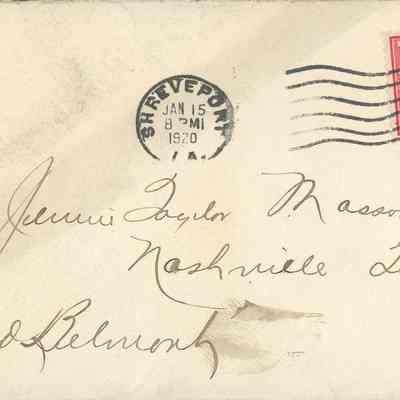 SHREVEPORT
JAN 15
8 PM
1920
LA.
Jennie Taylor Masso
Nashville
Belmont